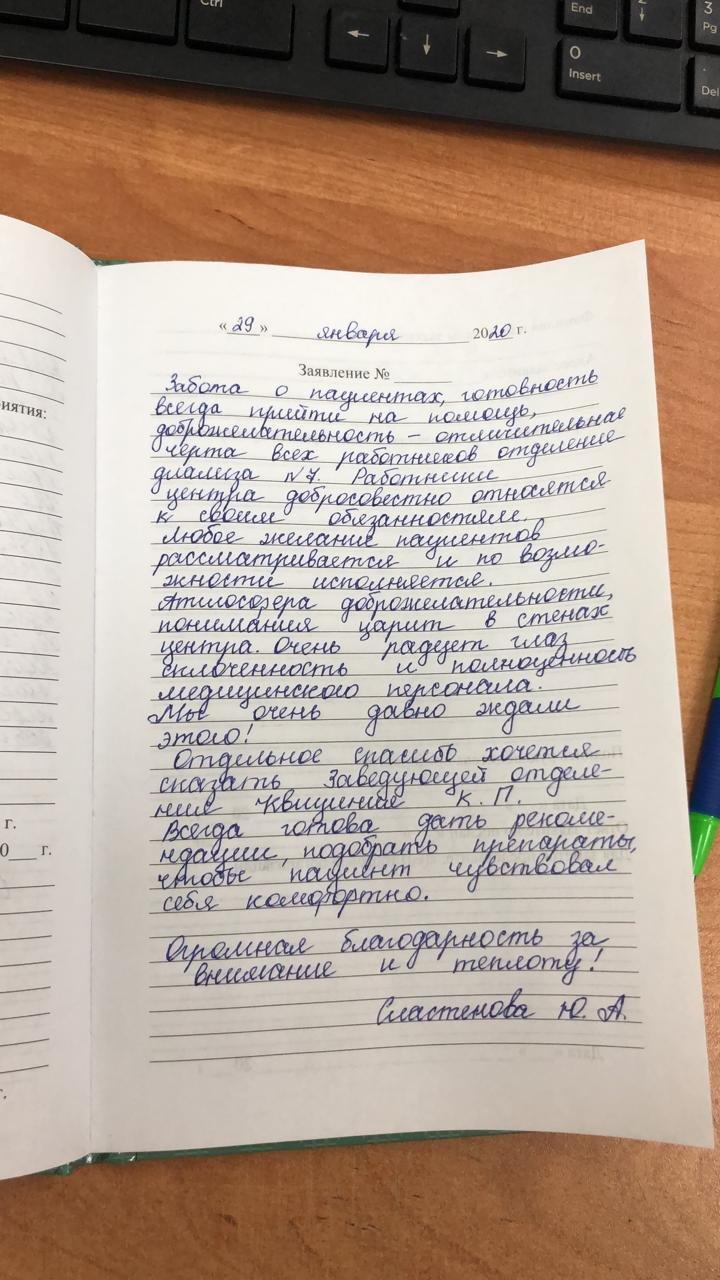 Ctrl
End
0
Insert
3
Pg
Del
« 29 » января 2020 г.
Заявление №
Забота о пациентах, готовность
всегда прийти на помощь,
доброжелательность – отличительная
черта всех работников отделение
диализа №7. Работники
центра добросовестно относятся
к своим обязанностям.
Любое желание пациентов
рассматривается и по возмо-
жности исполняется.
Атмосфера доброжелательности,
понимания царит в стенах
центра. Очень радует глаз
сплоченность и полноценность
медицинского персонала.
Мы очень давно ждали
этого!
Отдельное спасибо хочется
сказать Заведующей отделе-
ния К. П.
Всегда готова дать рекоме-
ндации, подобрать препараты,
чтобы пациент чувствовал
себя комфортно.
Огромная благодарность за
внимание и теплоту!
Сластенова Ю. А.
иятия:
г.
0 г.
г.